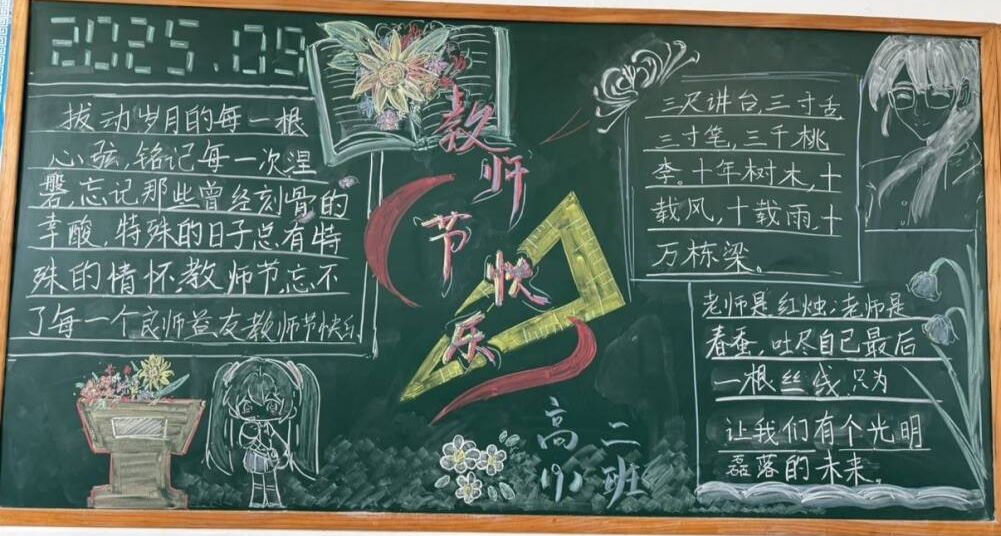 2025.09
拔动岁月的每一根
心弦,铭记每一次涅
磐,忘记那些曾经刻骨的
辛酸,特殊的日子总有特
殊的情怀.教师节忘不
了每一个良师益友教师节快乐
教师节快乐
三尺讲台,三寸舌
三寸笔,三千桃
李。十年树木,十
载风,十载雨,十
万栋梁。
老师是红烛;老师是
春蚕,吐尽自己最后
一根丝线,只为
让我们有个光明
磊落的未来。
高二
班